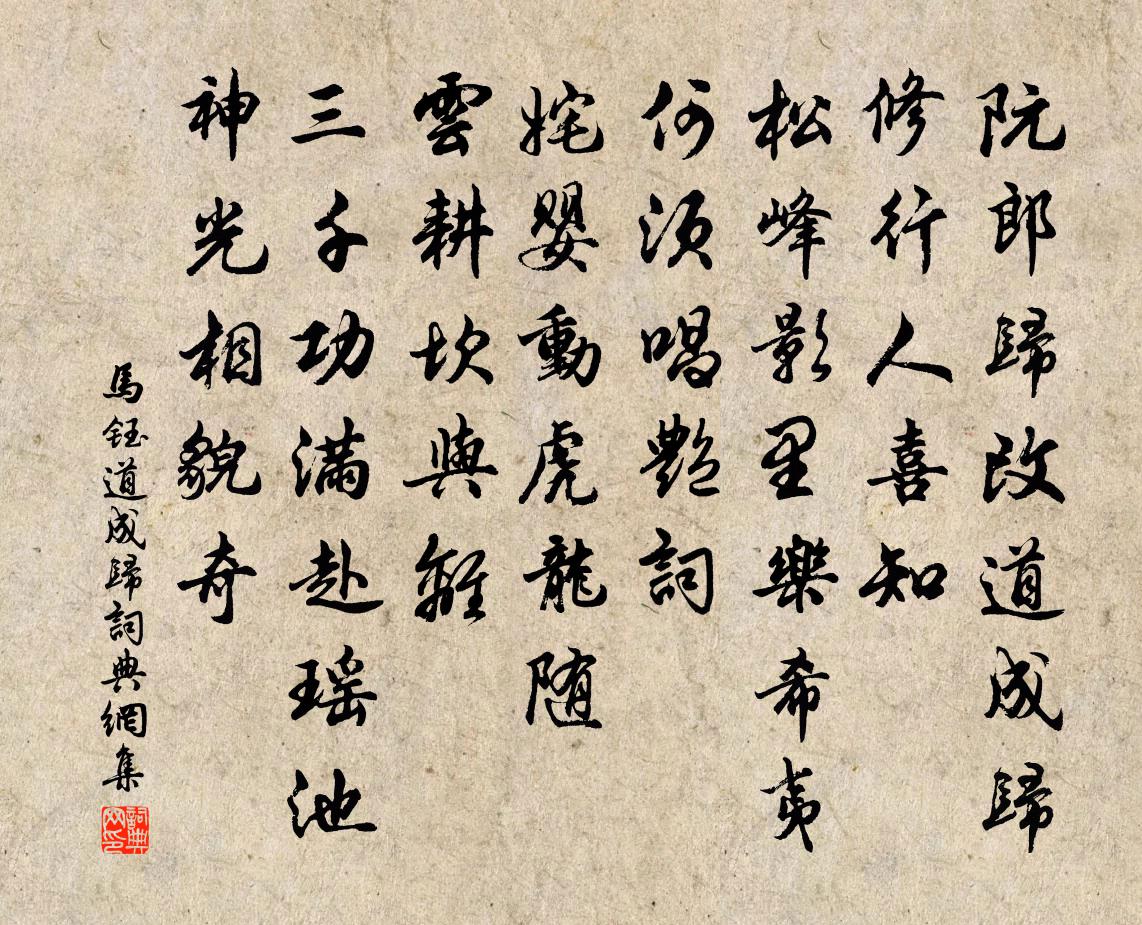 阮郎歸改道成歸
修行人喜知
松峰影里樂希夷
何須唱艷詞
姹嬰動虎龍隨
雲耕坎與離
三千功滿赴瑶池
神光相貌奇
馬鈺道成歸詞典網集
詞典网印